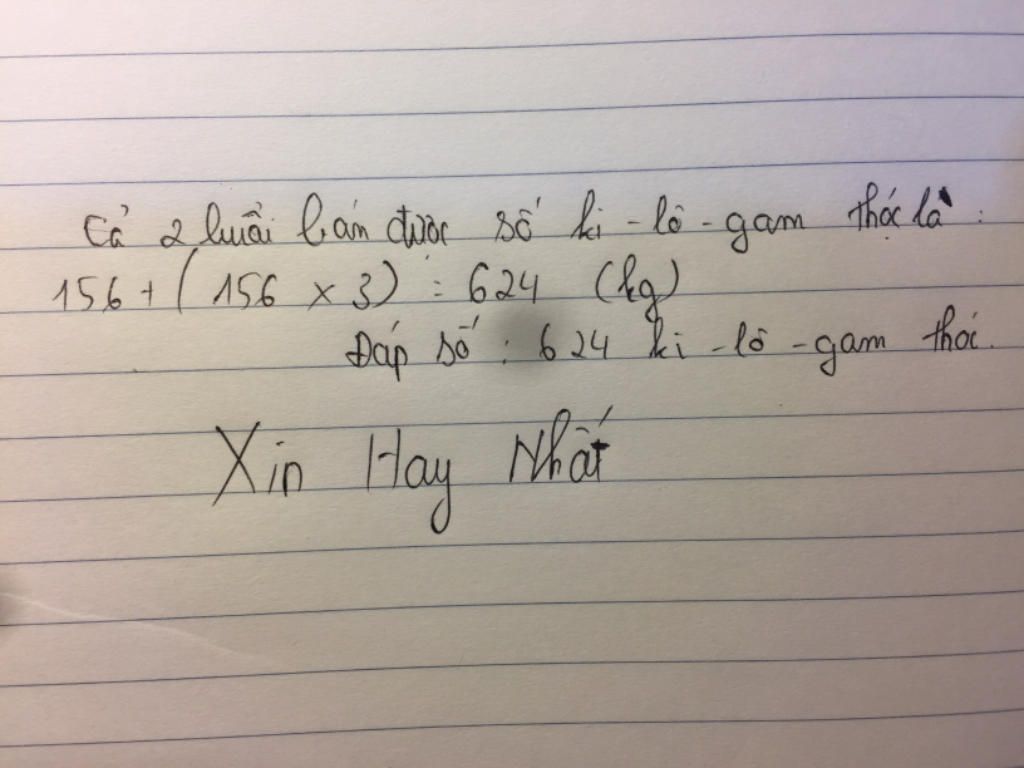 Cả 2 buổi bán được số ki-lô-gam thóc là :
156 + ( 156 x 3 ) = 624 (kg)
Đáp số : 624 ki-lô-gam thóc.
Xin Hay Nhất